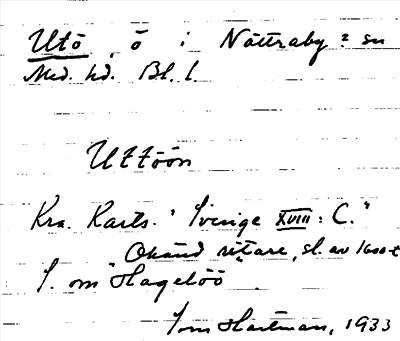 Utö ö i Nättraby ? sn
Med. hd. Bl. l.
Uttöön
Kra. Karts. "Sverige XVIII: C."
Okänd ritare, sl. av 1600-t
S. om "Hagelöö"
Tom Hartman, 1933